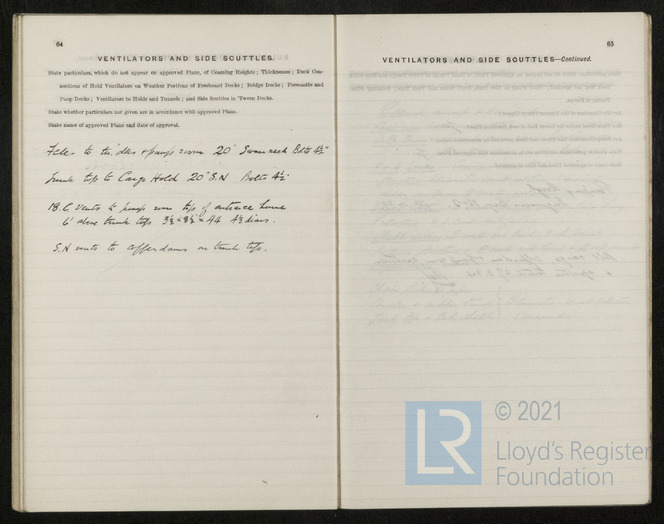 64
VENTILATORS AND SIDE SCUTTLES.
State particulars, which do not appear on approved Plans, of Coaming Heights; Thicknesses; Deck Con-
nections of Hold Ventilators on Weather Portions of Freeboard Decks; Bridge Decks; Forecastle and
Poop Decks; Ventilators to Holds and Tunnels; and Side Scuttles in 'Tween Decks.
State whether particulars not given are in accordance with approved Plans.
State name of approved Plans and date of approval.
to + pump room 20" Swan neck Bolts 4½"
trunk top to Cargo Hold 20" S.N Bolts 4½"
18. C Vents to pump room top of entrance house
6' above trunk tops 3½ × 3½ × 44 4½ diam.
S.N vents to cofferdams on trunk top.
65
VENTILATORS AND SIDE SCUTTLES—Continued.
LR
© 2021
Lloyd's Register
Foundation